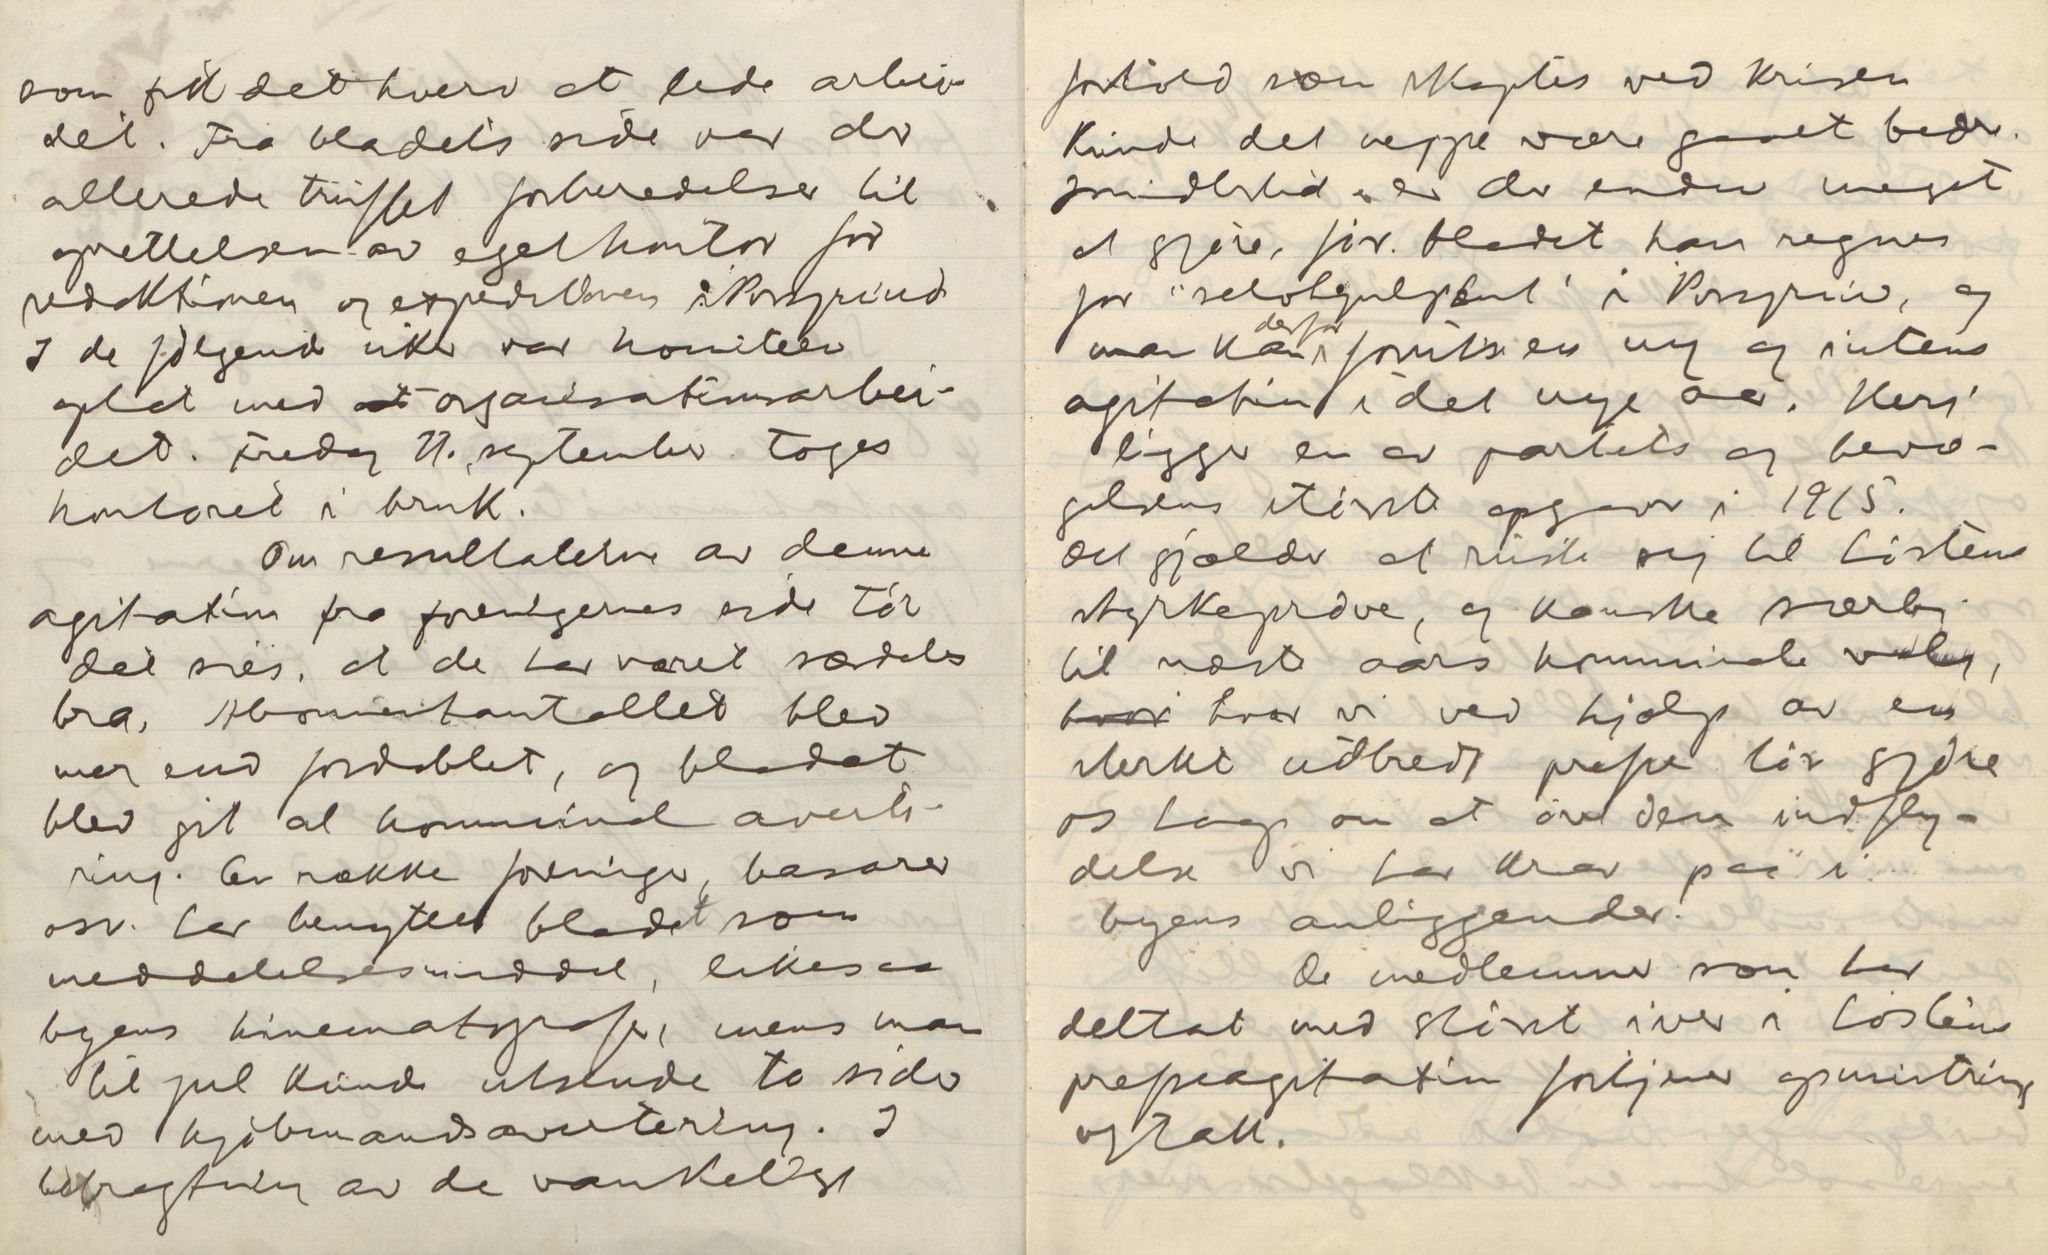 som fik det hverv at lede arbei-
det. Fra bladets side var der
allerede truffet forberedelser til
oprettelsen av eget kontor for
redaktionen og expeditionen i Porsgrund
I de følgende uker var komiteen
optat med organisationsarbei-
det. Fredag 11. september toges
kontoret i bruk.
Om resultaterne av denne
agitation fra foreningernes side tør
det sies, at de har været særdeles
bra. Abonnentantallet blev
mer end fordoblet, og bladet
blev git al kommunal averte-
ring. En række foreninger, basarer
osv. har benyttet bladet som
meddelelsesmiddel, likesaa
byens kinematografer, mens man
til jul kunde utsende to sider
med kjøbmandsavertering. I
betragtning av de vanskelige
forhold som skaptes ved krisen
kunde det neppe være gaaet bedre.
Imidlertid er der endnu meget
at gjøre, før bladet kan regnes
for "selvhjulpent" i Porsgrund, og
man kan derfor forutse en ny og intens
agitation i det nye aar. Heri
ligger en av partiets og bevæ-
gelsens største opgaver i 1915.
Det gjælder at ruste sig til høstens
styrkeprøve, og kanske særlig
til næste aars kommunale valg,
hvor hvor vi ved hjælp av en
sterkt utbredt presse tør gjøre
os haap om at øve den indfly-
delse vi har krav paa i
byens anliggender.
De medlemmer som har
deltat med størst iver i høstens
presseagitation fortjener opmuntring
og tak.